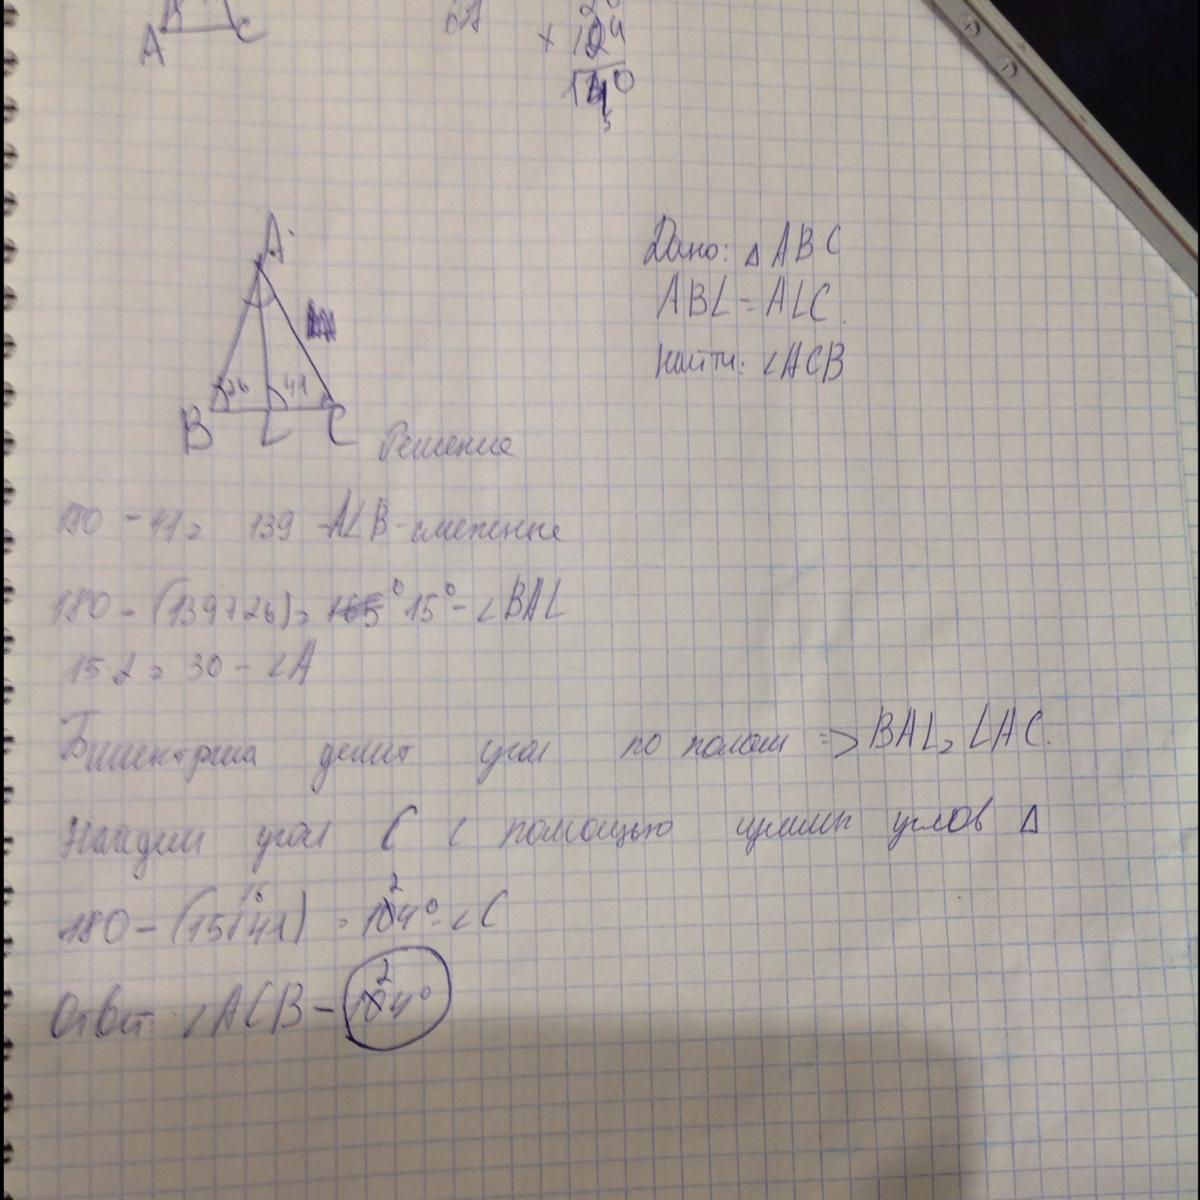 A C
× 124
Дано: △ ABC
ABL = ALC.
Найти: ∠ACB
A
26 41
B L C
Решение
180 - 41 = 139 - ALB - смежные
180 - (139+26) = 15° - ∠BAL
15·2 = 30 - ∠A
Биссектриса делит угол по полам => BAL = LAC.
Найдём угол C с помощью суммы углов △
180 - (15+41) = 124° - ∠C
Ответ: ∠ACB - 124°